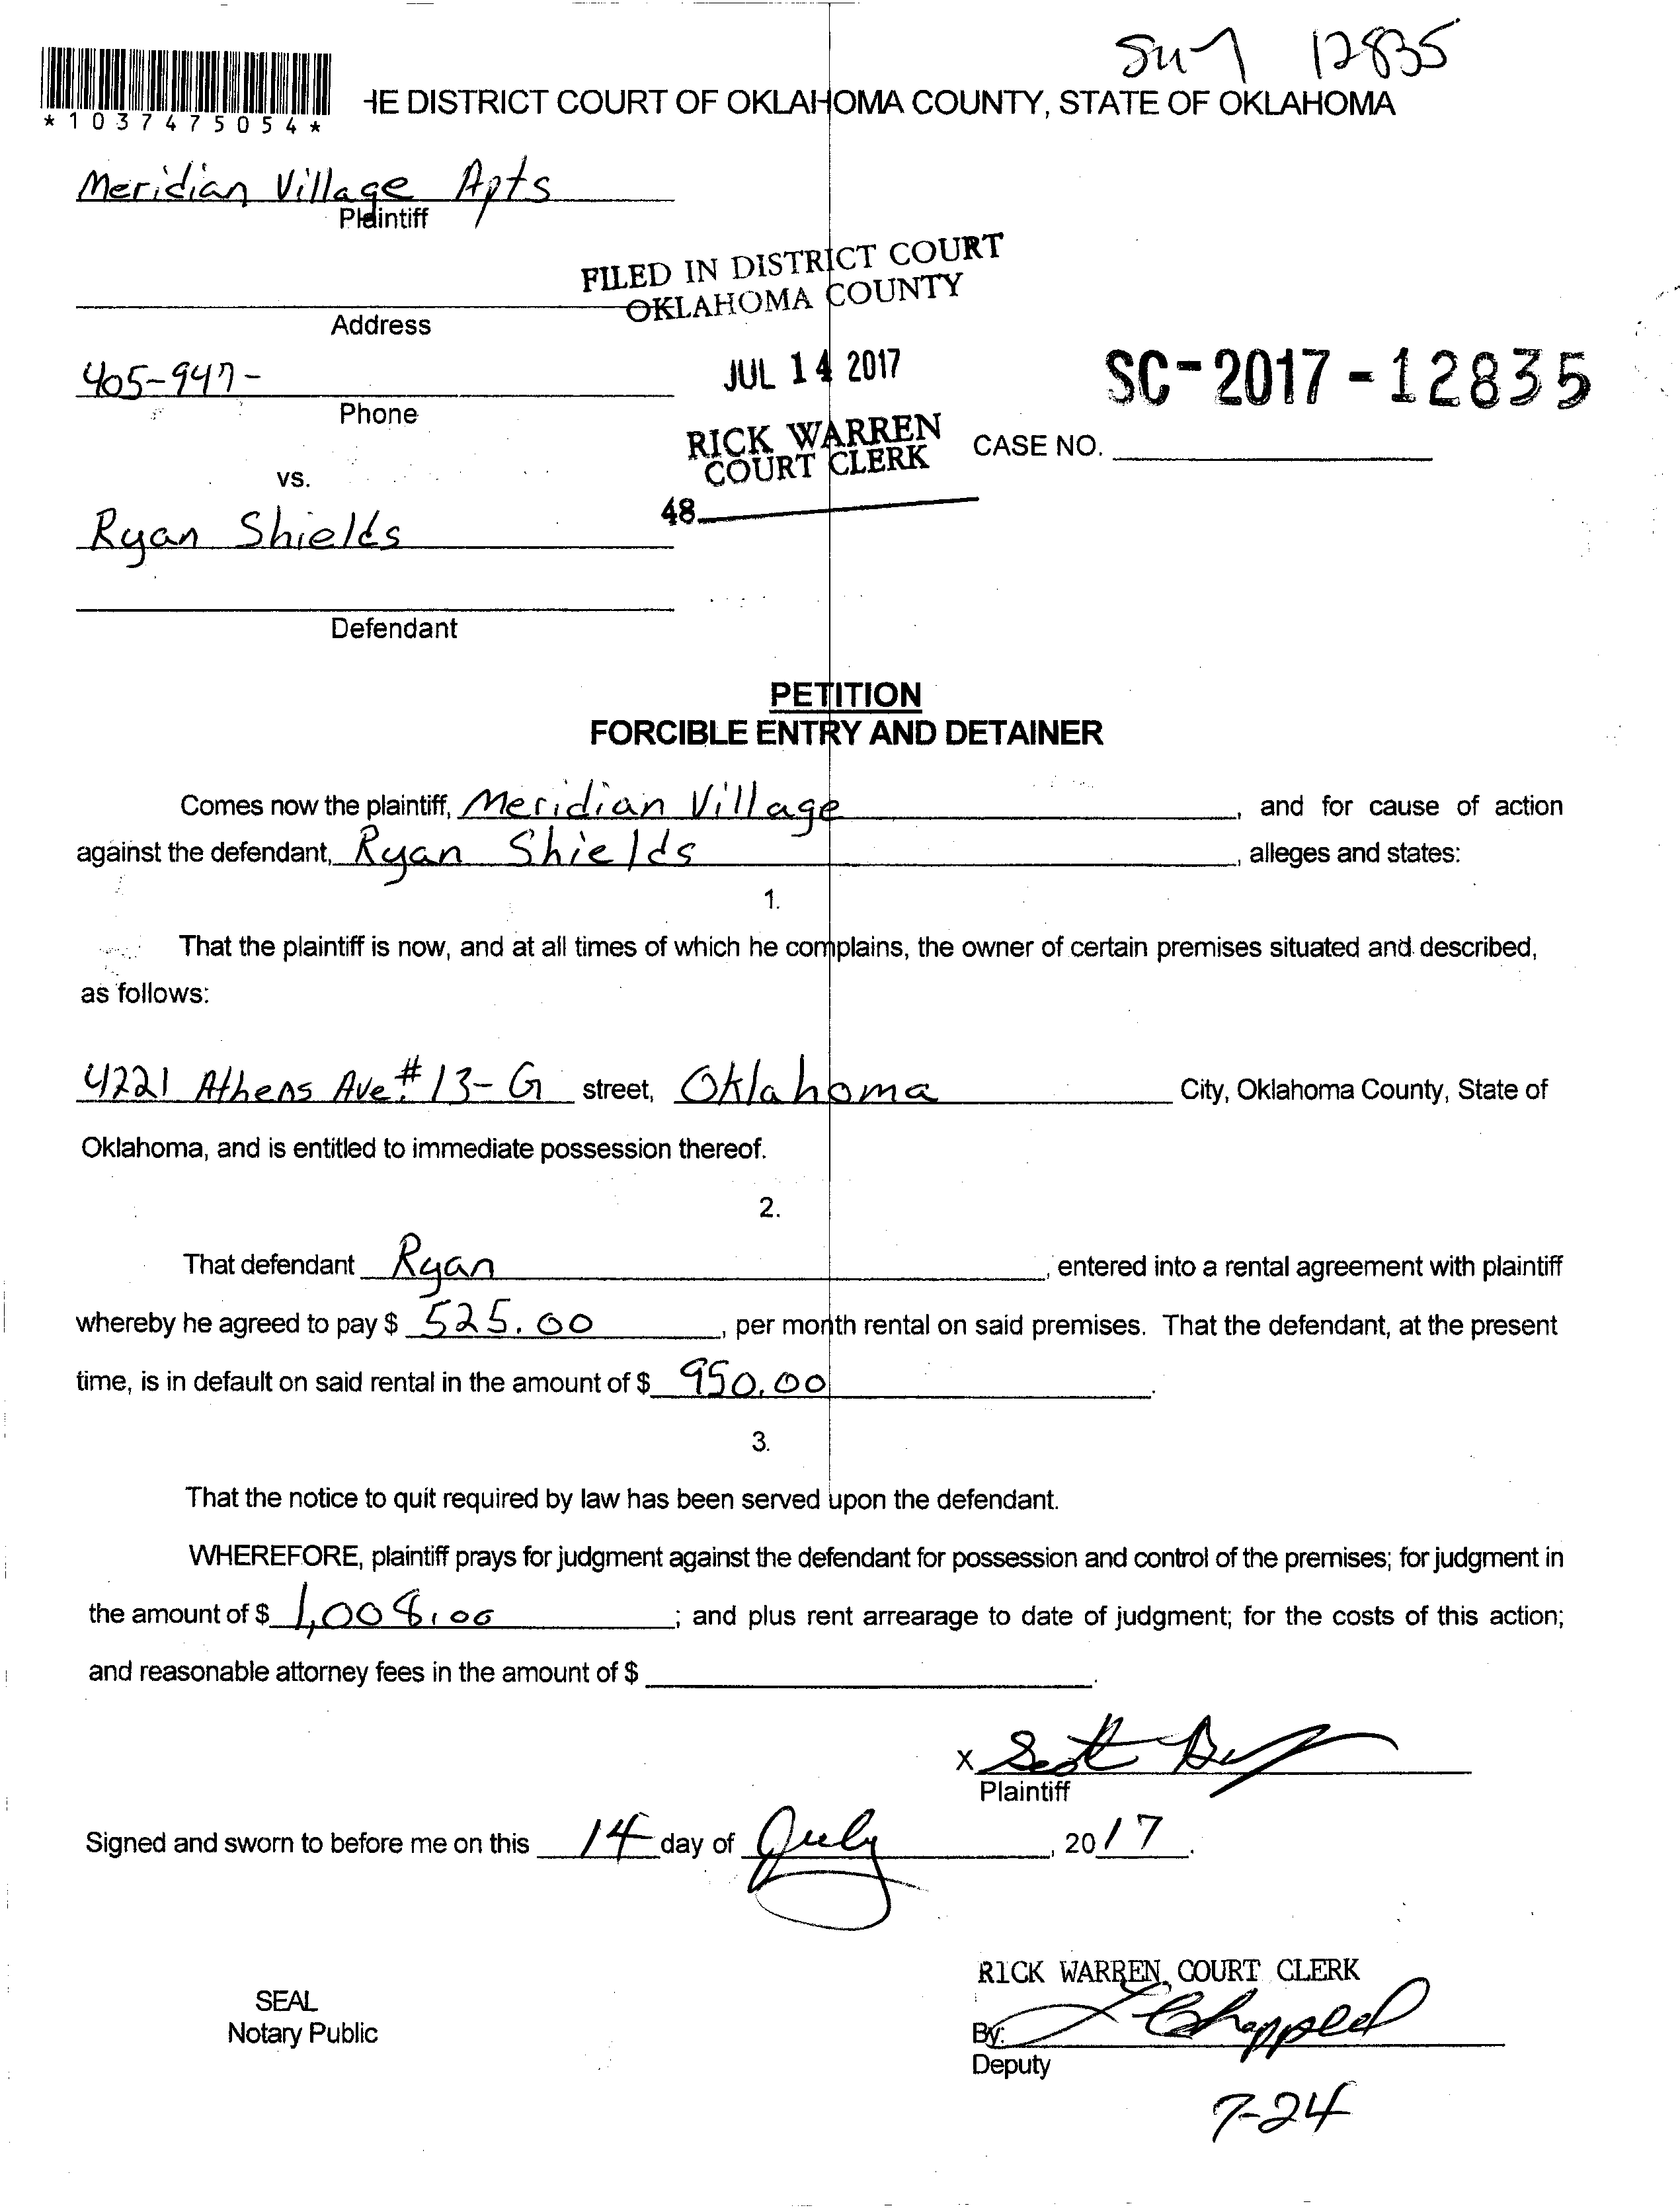 12835
*1037475054*
HE DISTRICT COURT OF OKLAHOMA COUNTY, STATE OF OKLAHOMA
Meridian Village Apts
Plaintiff
FILED IN DISTRICT COURT
OKLAHOMA COUNTY
Address
JUL 14 2017
SC-2017-12835
405-947-
Phone
RICK WARREN
COURT CLERK
CASE NO.
vs.
48
Ryan Shields
Defendant
PETITION
FORCIBLE ENTRY AND DETAINER
Comes now the plaintiff, Meridian Village, and for cause of action
against the defendant, Ryan Shields, alleges and states:
1.
That the plaintiff is now, and at all times of which he complains, the owner of certain premises situated and described,
as follows:
4221 Athens Ave. #13-G street, Oklahoma City, Oklahoma County, State of
Oklahoma, and is entitled to immediate possession thereof.
2.
That defendant Ryan, entered into a rental agreement with plaintiff
whereby he agreed to pay $ 525.00, per month rental on said premises. That the defendant, at the present
time, is in default on said rental in the amount of $ 950.00.
3.
That the notice to quit required by law has been served upon the defendant.
WHEREFORE, plaintiff prays for judgment against the defendant for possession and control of the premises; for judgment in
the amount of $ 1,008.00; and plus rent arrearage to date of judgment; for the costs of this action;
and reasonable attorney fees in the amount of $ .
X Scott
Plaintiff
Signed and sworn to before me on this 14 day of July, 2017.
RICK WARREN, COURT CLERK
SEAL
Notary Public
By: Chappled
Deputy
7-24